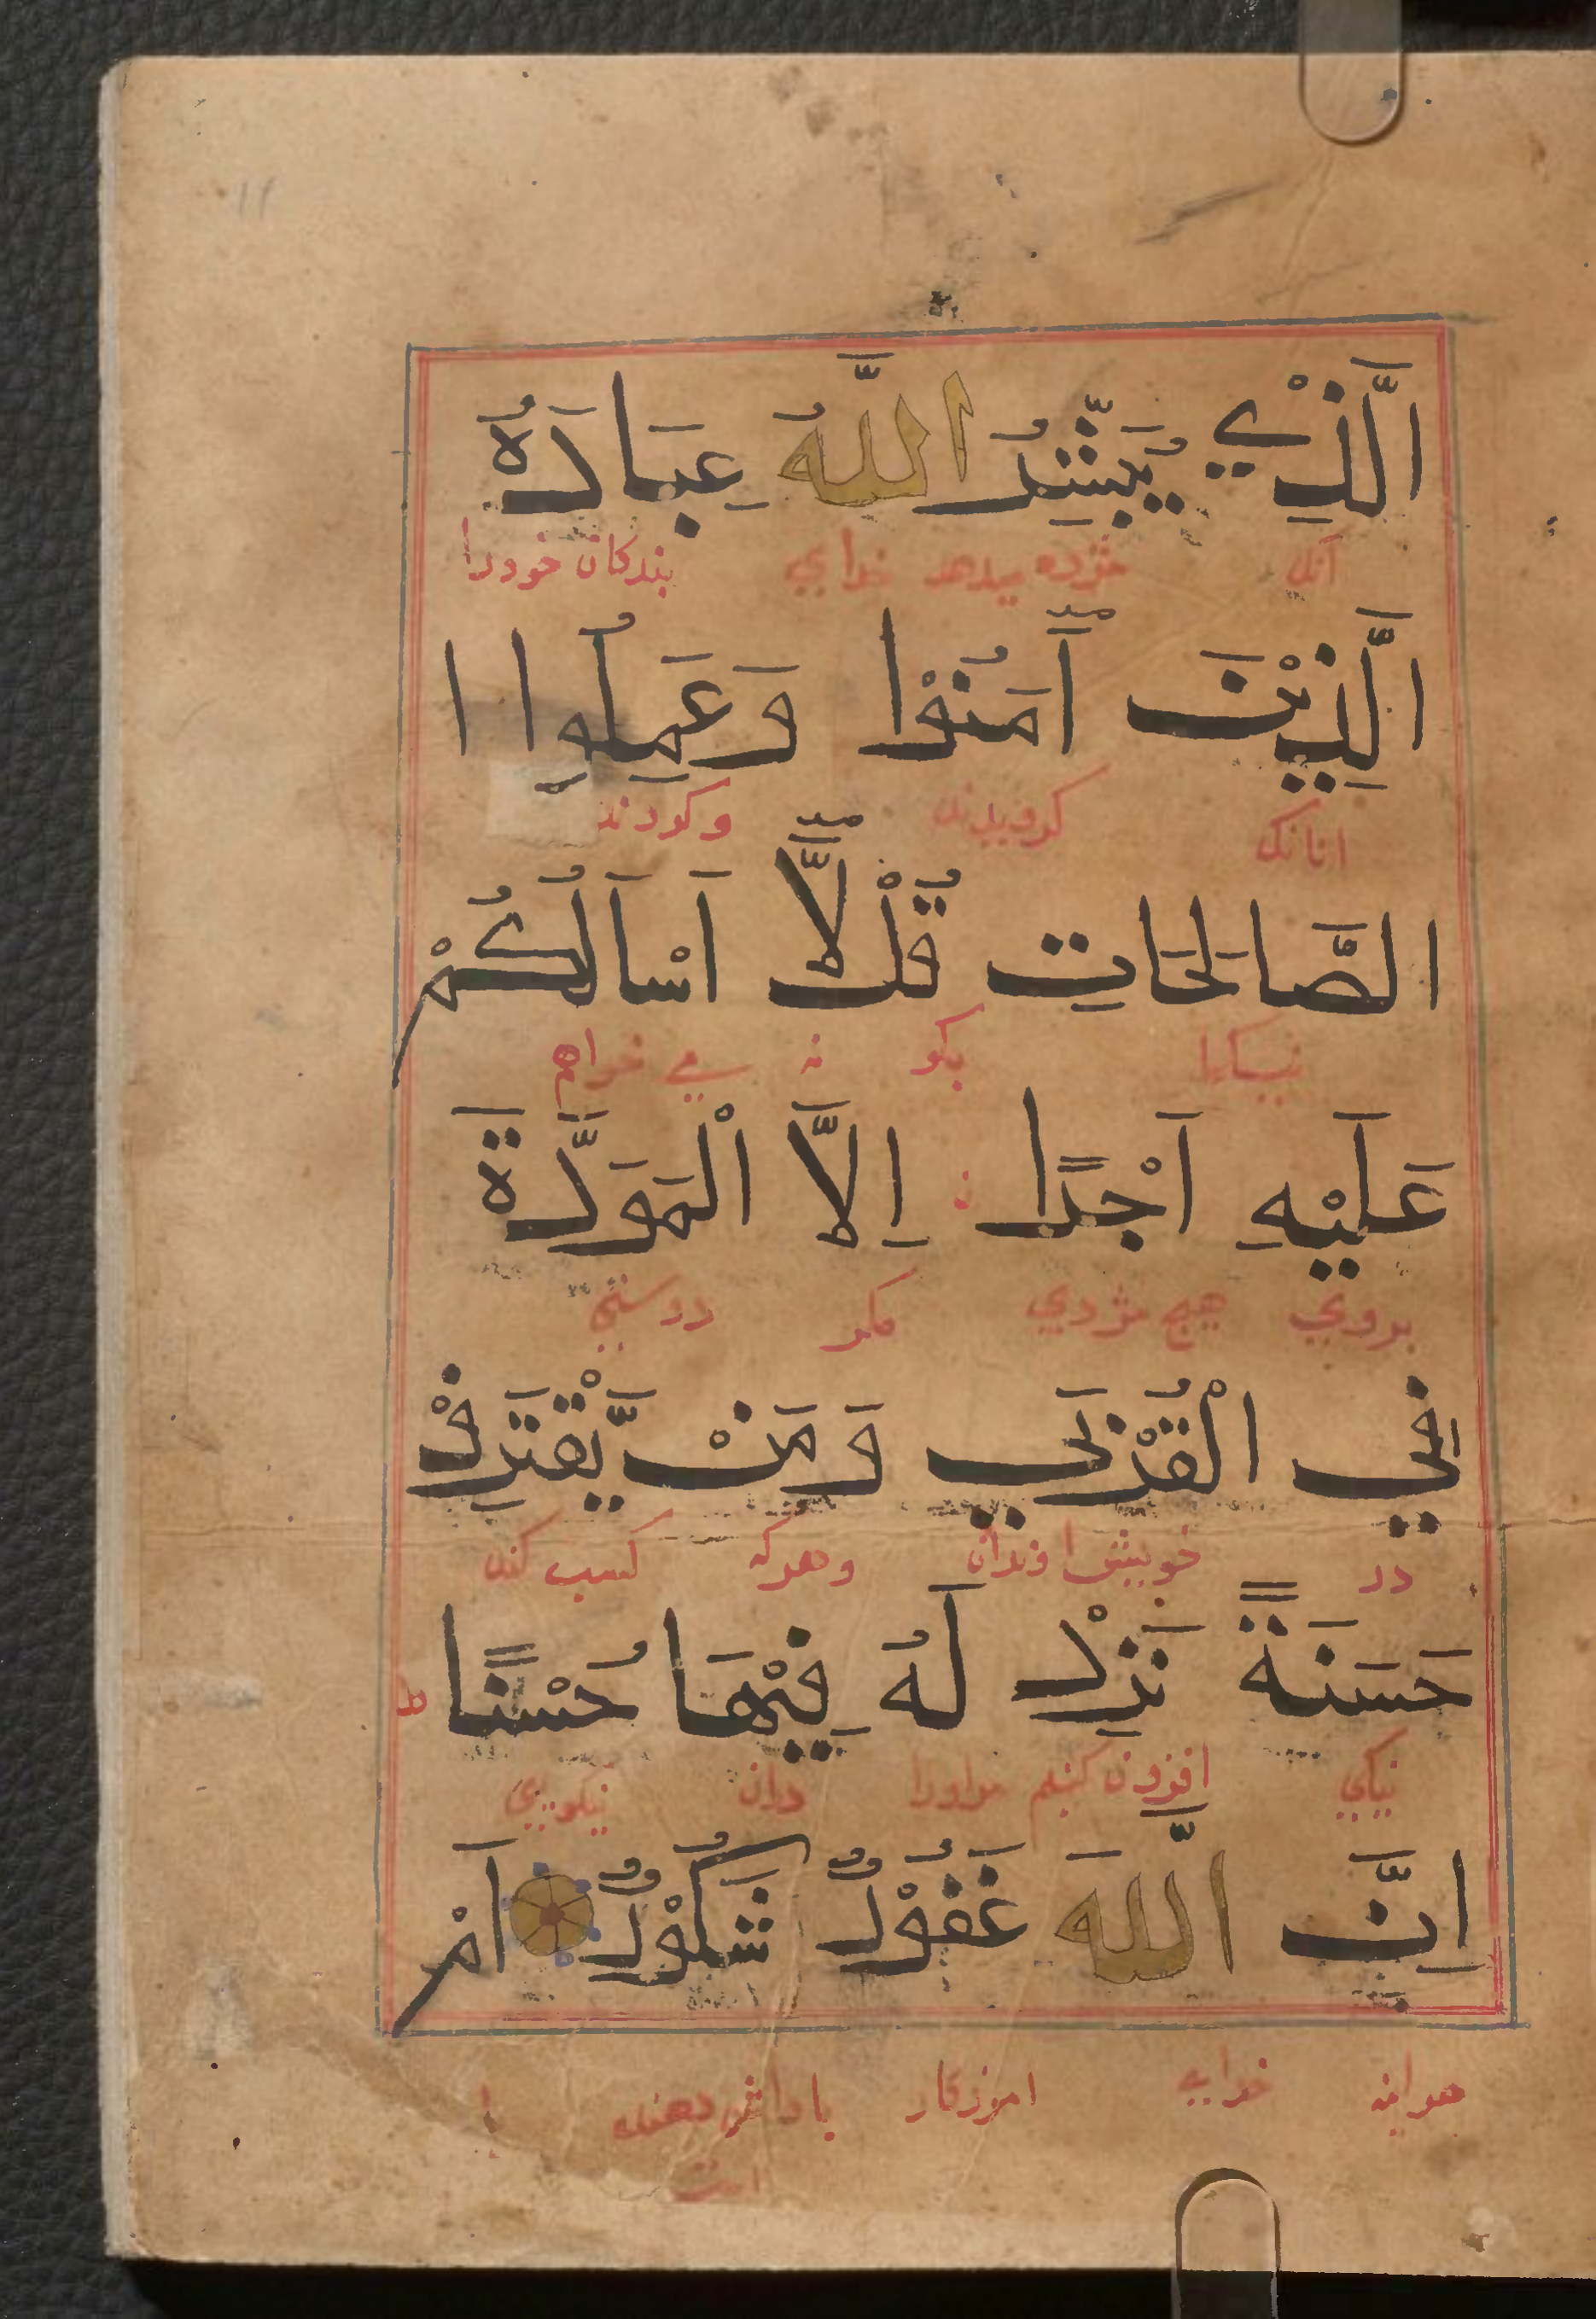 اَلَّذِيْ يُبَشِّرُ اللَّهُ عِبَادَهُ
آنك مژده میدهد خدای بندكان خودرا
اَلَّذِيْنَ آمَنُوْا وَعَمِلُوا ا
انانك كرویدند وكردند
الصَّالِحَاتِ قُلْ لَّآ اَسْاَلُكُمْ
بكو نه می خواهم
عَلَيْهِ اَجْرًا اِلَّا الْمَوَدَّةَ
بروی هیچ مژدی مكر دوستی
فِي الْقُرْبَي وَمَنْ يَّقْتَرِفْ
در خویش اوندان وهركه كسب كند
حَسَنَةً نَزِدْ لَهُ فِيْهَا حُسْنًا ط
نیكی افزون كنیم مراورا دران نیكویی
اِنَّ اللَّهَ غَفُوْرٌ شَكُوْرٌ اَمْ
هراینه خدایی امرزكار باداش دهنده یا
است